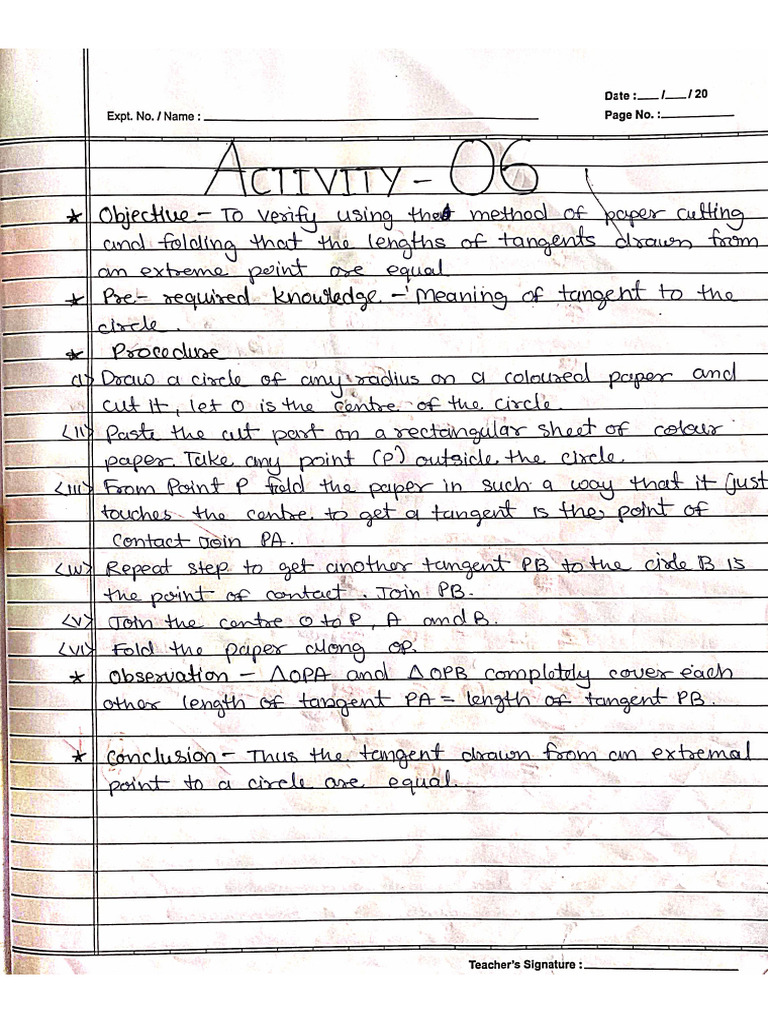 Date : ___ / ___ / 20
Expt. No. / Name : ___
Page No. : ___
ACTIVITY - 06
* Objective - To verify using the method of paper cutting
and folding that the lengths of tangents drawn from
an extreme point are equal
* Pre- required knowledge - Meaning of tangent to the
circle.
* Procedure
(i) Draw a circle of any radius on a coloured paper and
cut it, let O is the centre of the circle.
<ii> Paste the cut part on a rectangular sheet of colour
paper. Take any point (P) outside the circle.
<iii> From Point P fold the paper in such a way that it just
touches the centre to get a tangent is the point of
Contact Join PA.
<iv> Repeat step to get another tangent PB to the circle B is
the point of contact. Join PB.
<v> Join the centre O to P, A and B.
<vi> Fold the paper along OP.
* Observation - △OPA and △OPB completely cover each
other length of tangent PA = length of tangent PB.
* Conclusion - Thus the tangent drawn from an extremal
point to a circle are equal.
Teacher's Signature : ___